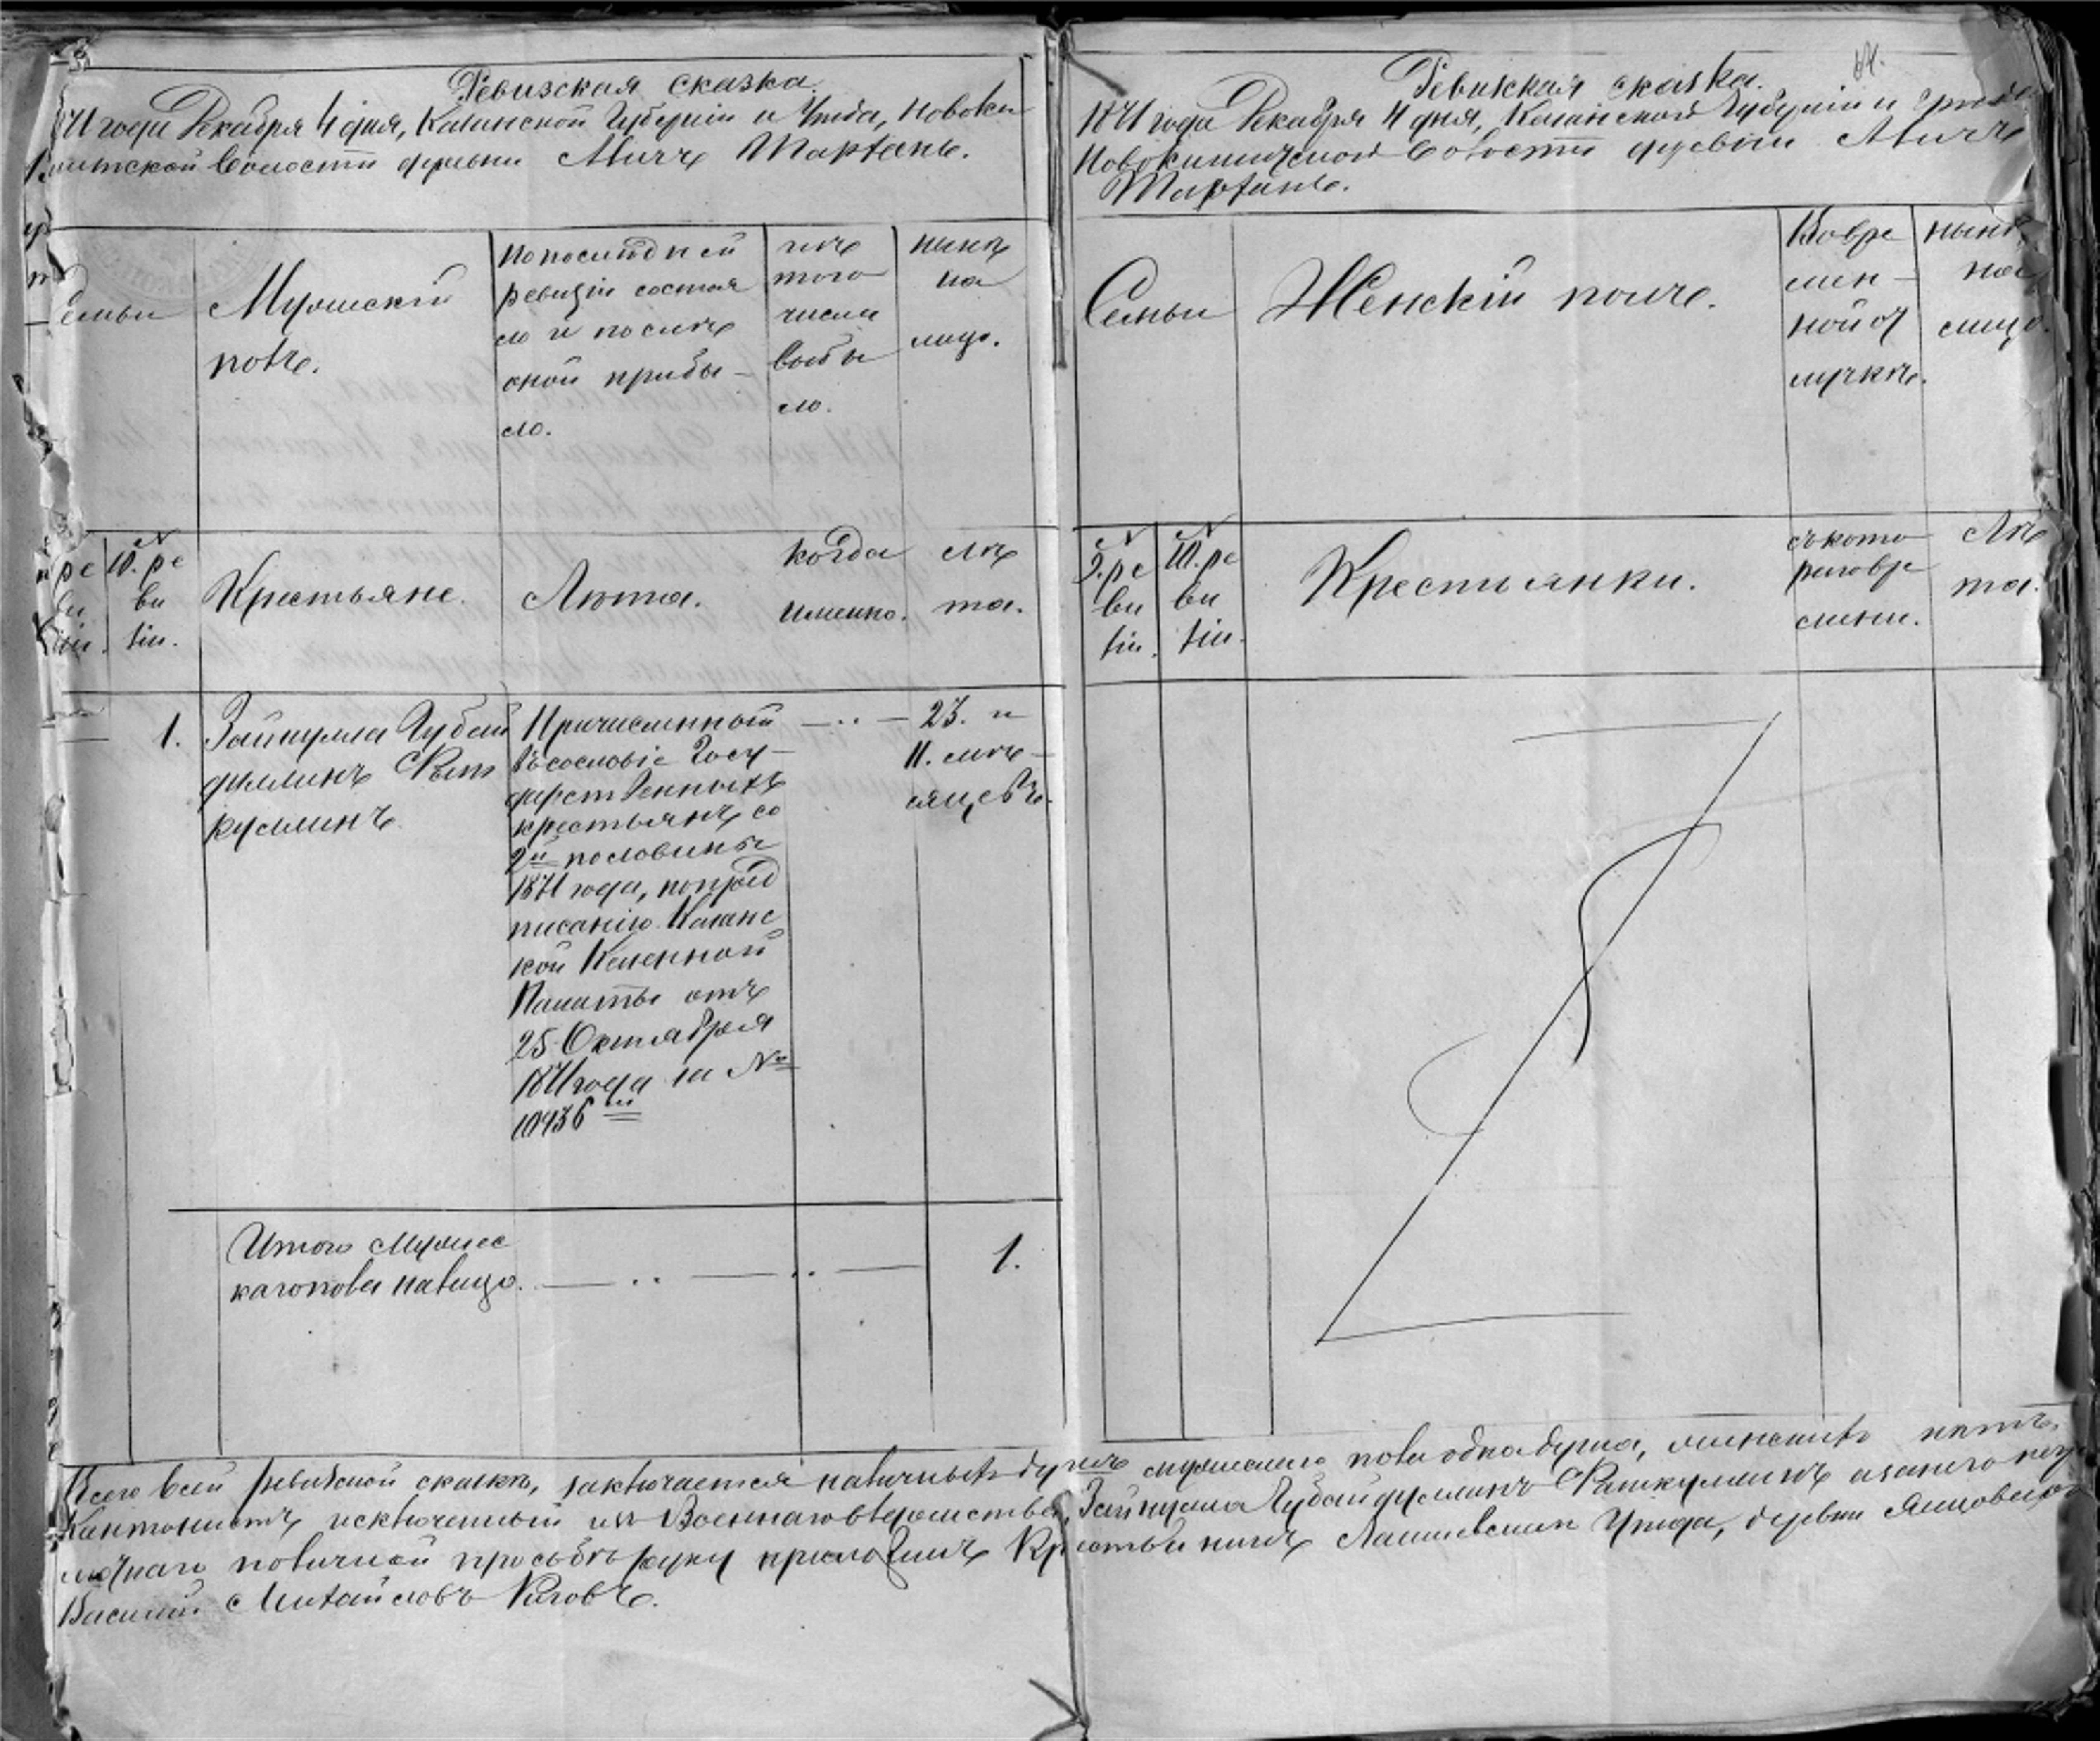 Ревизская сказка.
1871 года Декабря 4 дня, Казанской Губерніи и Уѣзда, Новоки
шитской Волости деревни Мичъ Шарзанъ.
Семьи
Мужескій
полъ.
По послѣдней
ревизіи состоя
ло и послѣ
оной прибы-
ло.
изъ
того
числа
выбы
ло.
нынѣ
на
лицо.
ре
ви
зіи.
№
10. ре
ви
зіи.
Крестьяне.
Лѣта.
когда
именно.
лѣ
та.
1.
Зайнулла Губай
дуллинъ
кулминъ
Причисленный
въ сословіе Госу-
дарственныхъ
крестьянъ со
2й половины
1871 года, по пред
писанію Казанс
кой Казенной
Палаты отъ
25 Октября
1871 года за №
10436
23. и
11. мѣ-
сяцевъ.
Итого мужес
каго пола на лицо.
1.
Ревизская сказка.
1871 года Декабря 4 дня, Казанской Губерніи и Уѣзда
Новокишитской Волости деревни Мичъ
Шарзанъ.
Семьи
Женскій полъ.
Во вре
мен-
ной от
лучкѣ.
нынѣ
на
лицо.
№
9. ре
ви
зіи.
№
10. ре
ви
зіи.
Крестьянки.
съ кото
раго вре
мени.
Лѣ
та.
Всего въ сей ревизской сказкѣ, заключается наличныхъ душъ мужескаго пола одна душа, женскихъ нѣтъ.
Кантонистъ исключенный изъ Военнаго вѣдомства, Зайнулла Губайдуллинъ а за него негра
мотнаго по личной просьбѣ руку приложилъ Крестьянинъ Лаишевскаго Уѣзда, деревни
Василій Михайловъ